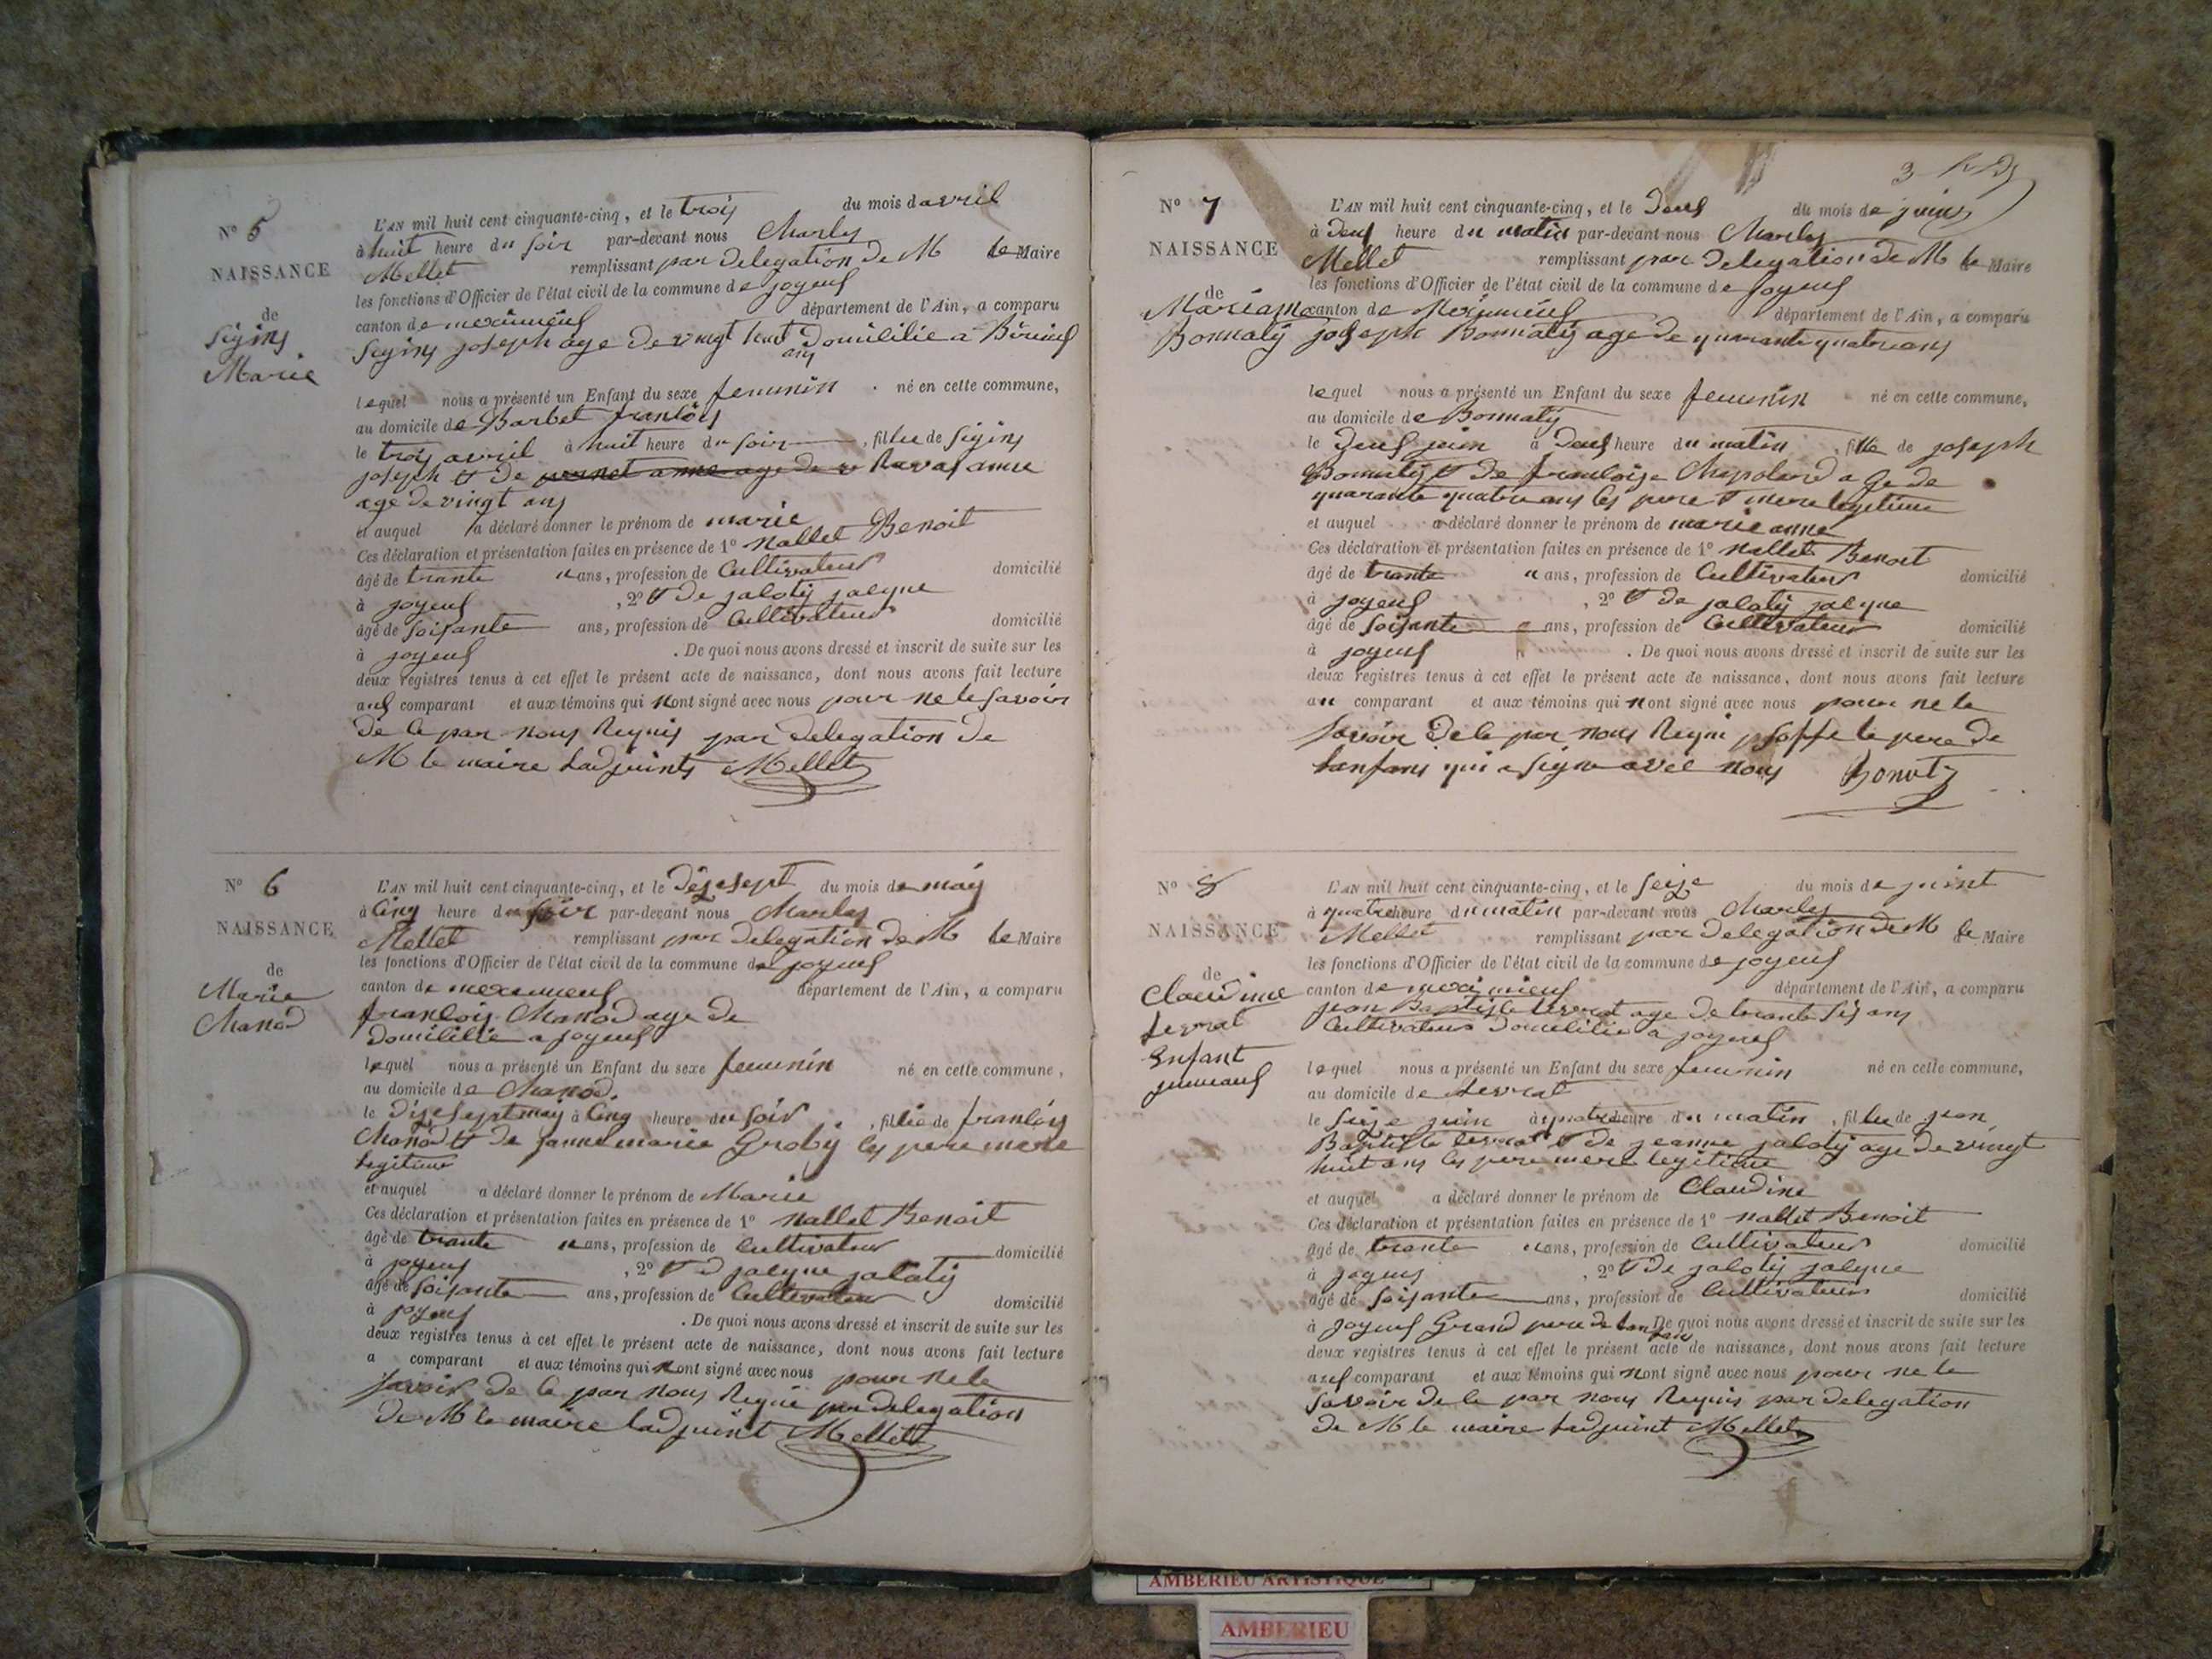 No 5
NAISSANCE
de
Sigins
Marie
L'AN mil huit cent cinquante-cinq, et le trois du mois d avril
à huit heure du soir par-devant nous Charles
Mellet remplissant par delegation de M le Maire
les fonctions d'Officier de l'état civil de la commune de joyeus
canton de meximieus département de l'Ain, a comparu
Segins joseph age de vingt huit ans domicilie a
lequel nous a présenté un Enfant du sexe femmin né en cette commune,
au domicile de Barbet francois
le trois avril à huit heure du soir, fille de Sigins
joseph et de anne
age de vingt ans
et auquel a déclaré donner le prénom de marie
Ces déclaration et présentation faites en présence de 1° Nallet Benoit
âgé de trante ans, profession de Cultivateur domicilié
à joyeus, 2° et de jacotÿ jacque
âgé de soisante ans, profession de Cultivateur domicilié
à joyeus. De quoi nous avons dressé et inscrit de suite sur les
deux registres tenus à cet effet le présent acte de naissance, dont nous avons fait lecture
aus comparant et aux témoins qui nont signé avec nous pour ne le savoir
de ce par nous Requis par delegation de
M le maire ladjuints Mellet
No 6
NAISSANCE
de
Marie
Chanod
L'AN mil huit cent cinquante-cinq, et le disesept du mois de may
à Cinq heure du soir par-devant nous Charles
Mellet remplissant par delegation de M le Maire
les fonctions d'Officier de l'état civil de la commune de joyeus
canton de meximieus département de l'Ain, a comparu
francois Chanod age de
domicilie a joyeus
lequel nous a présenté un Enfant du sexe femmin né en cette commune,
au domicile de Chanod.
le disesept may à Cinq heure du soir, fille de francois
Chanod et de janne marie Grobÿ les pere mere
legitime
et auquel a déclaré donner le prénom de Marie
Ces déclaration et présentation faites en présence de 1° Nallet Benoit
âgé de trante ans, profession de Cultivateur domicilié
à joyeus, 2° et d jacque jacotÿ
âgé de soisante ans, profession de Cultivateur domicilié
à joyeus. De quoi nous avons dressé et inscrit de suite sur les
deux registres tenus à cet effet le présent acte de naissance, dont nous avons fait lecture
a comparant et aux témoins qui nont signé avec nous pour ne le
savoir de ce par nous Requi par delegation
de M le maire ladjuint Mellet
3
No 7
NAISSANCE
de
Bonnatÿ
L'AN mil huit cent cinquante-cinq, et le deus du mois de juin
à deus heure du matin par-devant nous Charles
Mellet remplissant par delegation de M le Maire
les fonctions d'Officier de l'état civil de la commune de joyeus
canton de Meximieus département de l'Ain, a comparu
joseph Bonnatÿ age de quarante quatre ans
lequel nous a présenté un Enfant du sexe femmin né en cette commune,
au domicile de Bonnatÿ
le deus juin à deus heure du matin fille de joseph
Bonnatÿ et de francoise Chapolard age de
quarante quatre ans les pere et mere legitime
et auquel a déclaré donner le prénom de marie anne
Ces déclaration et présentation faites en présence de 1° Nallet Benoit
âgé de trante ans, profession de Cultivateur domicilié
à joyeus, 2° et de jacotÿ jacque
âgé de soisante ans, profession de Cultivateur domicilié
à joyeus. De quoi nous avons dressé et inscrit de suite sur les
deux registres tenus à cet effet le présent acte de naissance, dont nous avons fait lecture
au comparant et aux témoins qui nont signé avec nous pour ne le
savoir de ce par nous Requi le pere de
lanfans qui a signe avec nous
No 8
NAISSANCE
de
Claudine
Enfant
jumeaus
L'AN mil huit cent cinquante-cinq, et le seize du mois de juint
à quatre heure du matin par-devant nous Charles
Mellet remplissant par delegation de M le Maire
les fonctions d'Officier de l'état civil de la commune de joyeus
canton de meximieus département de l'Ain, a comparu
jean Baptiste age de trante sis ans
Cultivateur domicilie a joyeus
lequel nous a présenté un Enfant du sexe femmin né en cette commune,
au domicile de
le seize juin à quatre heure du matin, fille de jean
Baptiste et de jeanne jacotÿ age de vingt
huit ans les pere mere legitime
et auquel a déclaré donner le prénom de Claudine
Ces déclaration et présentation faites en présence de 1° Nallet Benoit
âgé de trante ans, profession de Cultivateur domicilié
à joyeus, 2° et de jacotÿ jacque
âgé de soisante ans, profession de Cultivateur domicilié
à joyeus Grand pere de lanfans De quoi nous avons dressé et inscrit de suite sur les
deux registres tenus à cet effet le présent acte de naissance, dont nous avons fait lecture
aus comparant et aux témoins qui nont signé avec nous pour ne le
savoir de ce par nous Requis par delegation
de M le maire ladjuint Mellet
AMBERIEU ARTISTIQUE
AMBERIEU